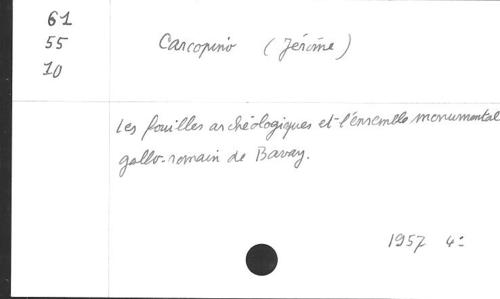 61
55
10
Carcopino (Jérôme)
Les fouilles archéologiques et l'ensemble monumental
gallo-romain de Bavay.
1957 4°